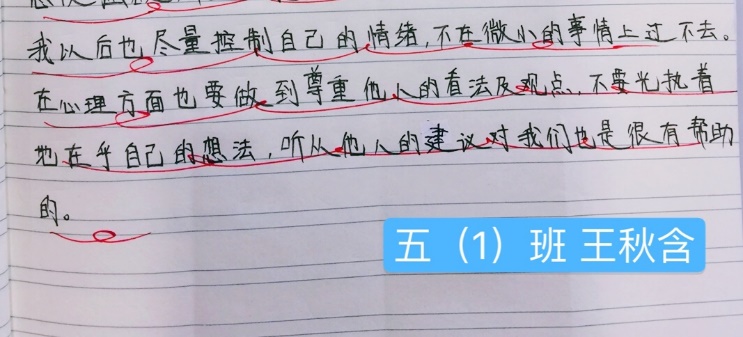 我以后也尽量控制自己的情绪,不在微小的事情上过不去。
在心理方面也要做到尊重他人的看法及观点,不要光执着
地在乎自己的想法,听从他人的建议对我们也是很有帮助
的。
五（1）班 王秋含